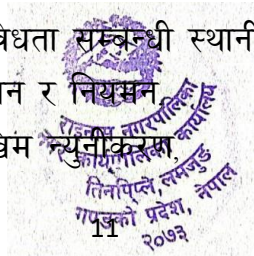 वेधता सम्बन्धी स्थानी
न र नियमन
खेम न्युनीकरण,
राइनास नगरपालिका
कार्यपालिकाको कार्यालय
तिनपिप्ले, लमजुङ
गण्डकी प्रदेश, नेपाल
२०७३
11